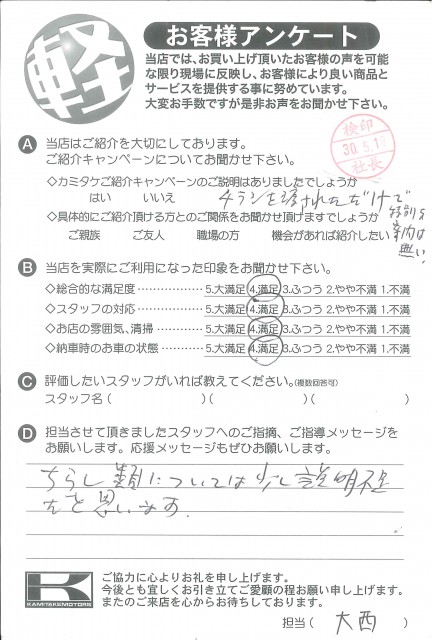 軽
お客様アンケート
当店では、お買い上げ頂いたお客様の声を可能
な限り現場に反映し、お客様により良い商品と
サービスを提供する事に努めています。
大変お手数ですが是非お声をお聞かせ下さい。
検印
30.5.18
社長
A 当店はご紹介を大切にしております。
ご紹介キャンペーンについてお聞かせ下さい。
◇カミタケご紹介キャンペーンのご説明はありましたでしょうか
はい いいえ
チラシを渡されただけで
特別な
案内は
無い!
◇具体的にご紹介頂ける方とのご関係をお聞かせ頂けますでしょうか
ご親族 ご友人 職場の方 機会があれば紹介したい
B 当店を実際にご利用になった印象をお聞かせ下さい。
◇総合的な満足度 5.大満足 4.満足 3.ふつう 2.やや不満 1.不満
◇スタッフの対応 5.大満足 4.満足 3.ふつう 2.やや不満 1.不満
◇お店の雰囲気、清掃 5.大満足 4.満足 3.ふつう 2.やや不満 1.不満
◇納車時のお車の状態 5.大満足 4.満足 3.ふつう 2.やや不満 1.不満
C 評価したいスタッフがいれば教えてください。(複数回答可)
スタッフ名( )( )( )
D 担当させて頂きましたスタッフへのご指摘、ご指導メッセージを
お願いします。応援メッセージもぜひお願いします。
ちらし類については少し説明不足
だと思います.
K
KAMITAKE MOTORS
ご協力に心よりお礼を申し上げます。
今後とも宜しくお引き立てご愛顧の程お願い申し上げます。
またのご来店を心からお待ちしております。
担当( 大西 )